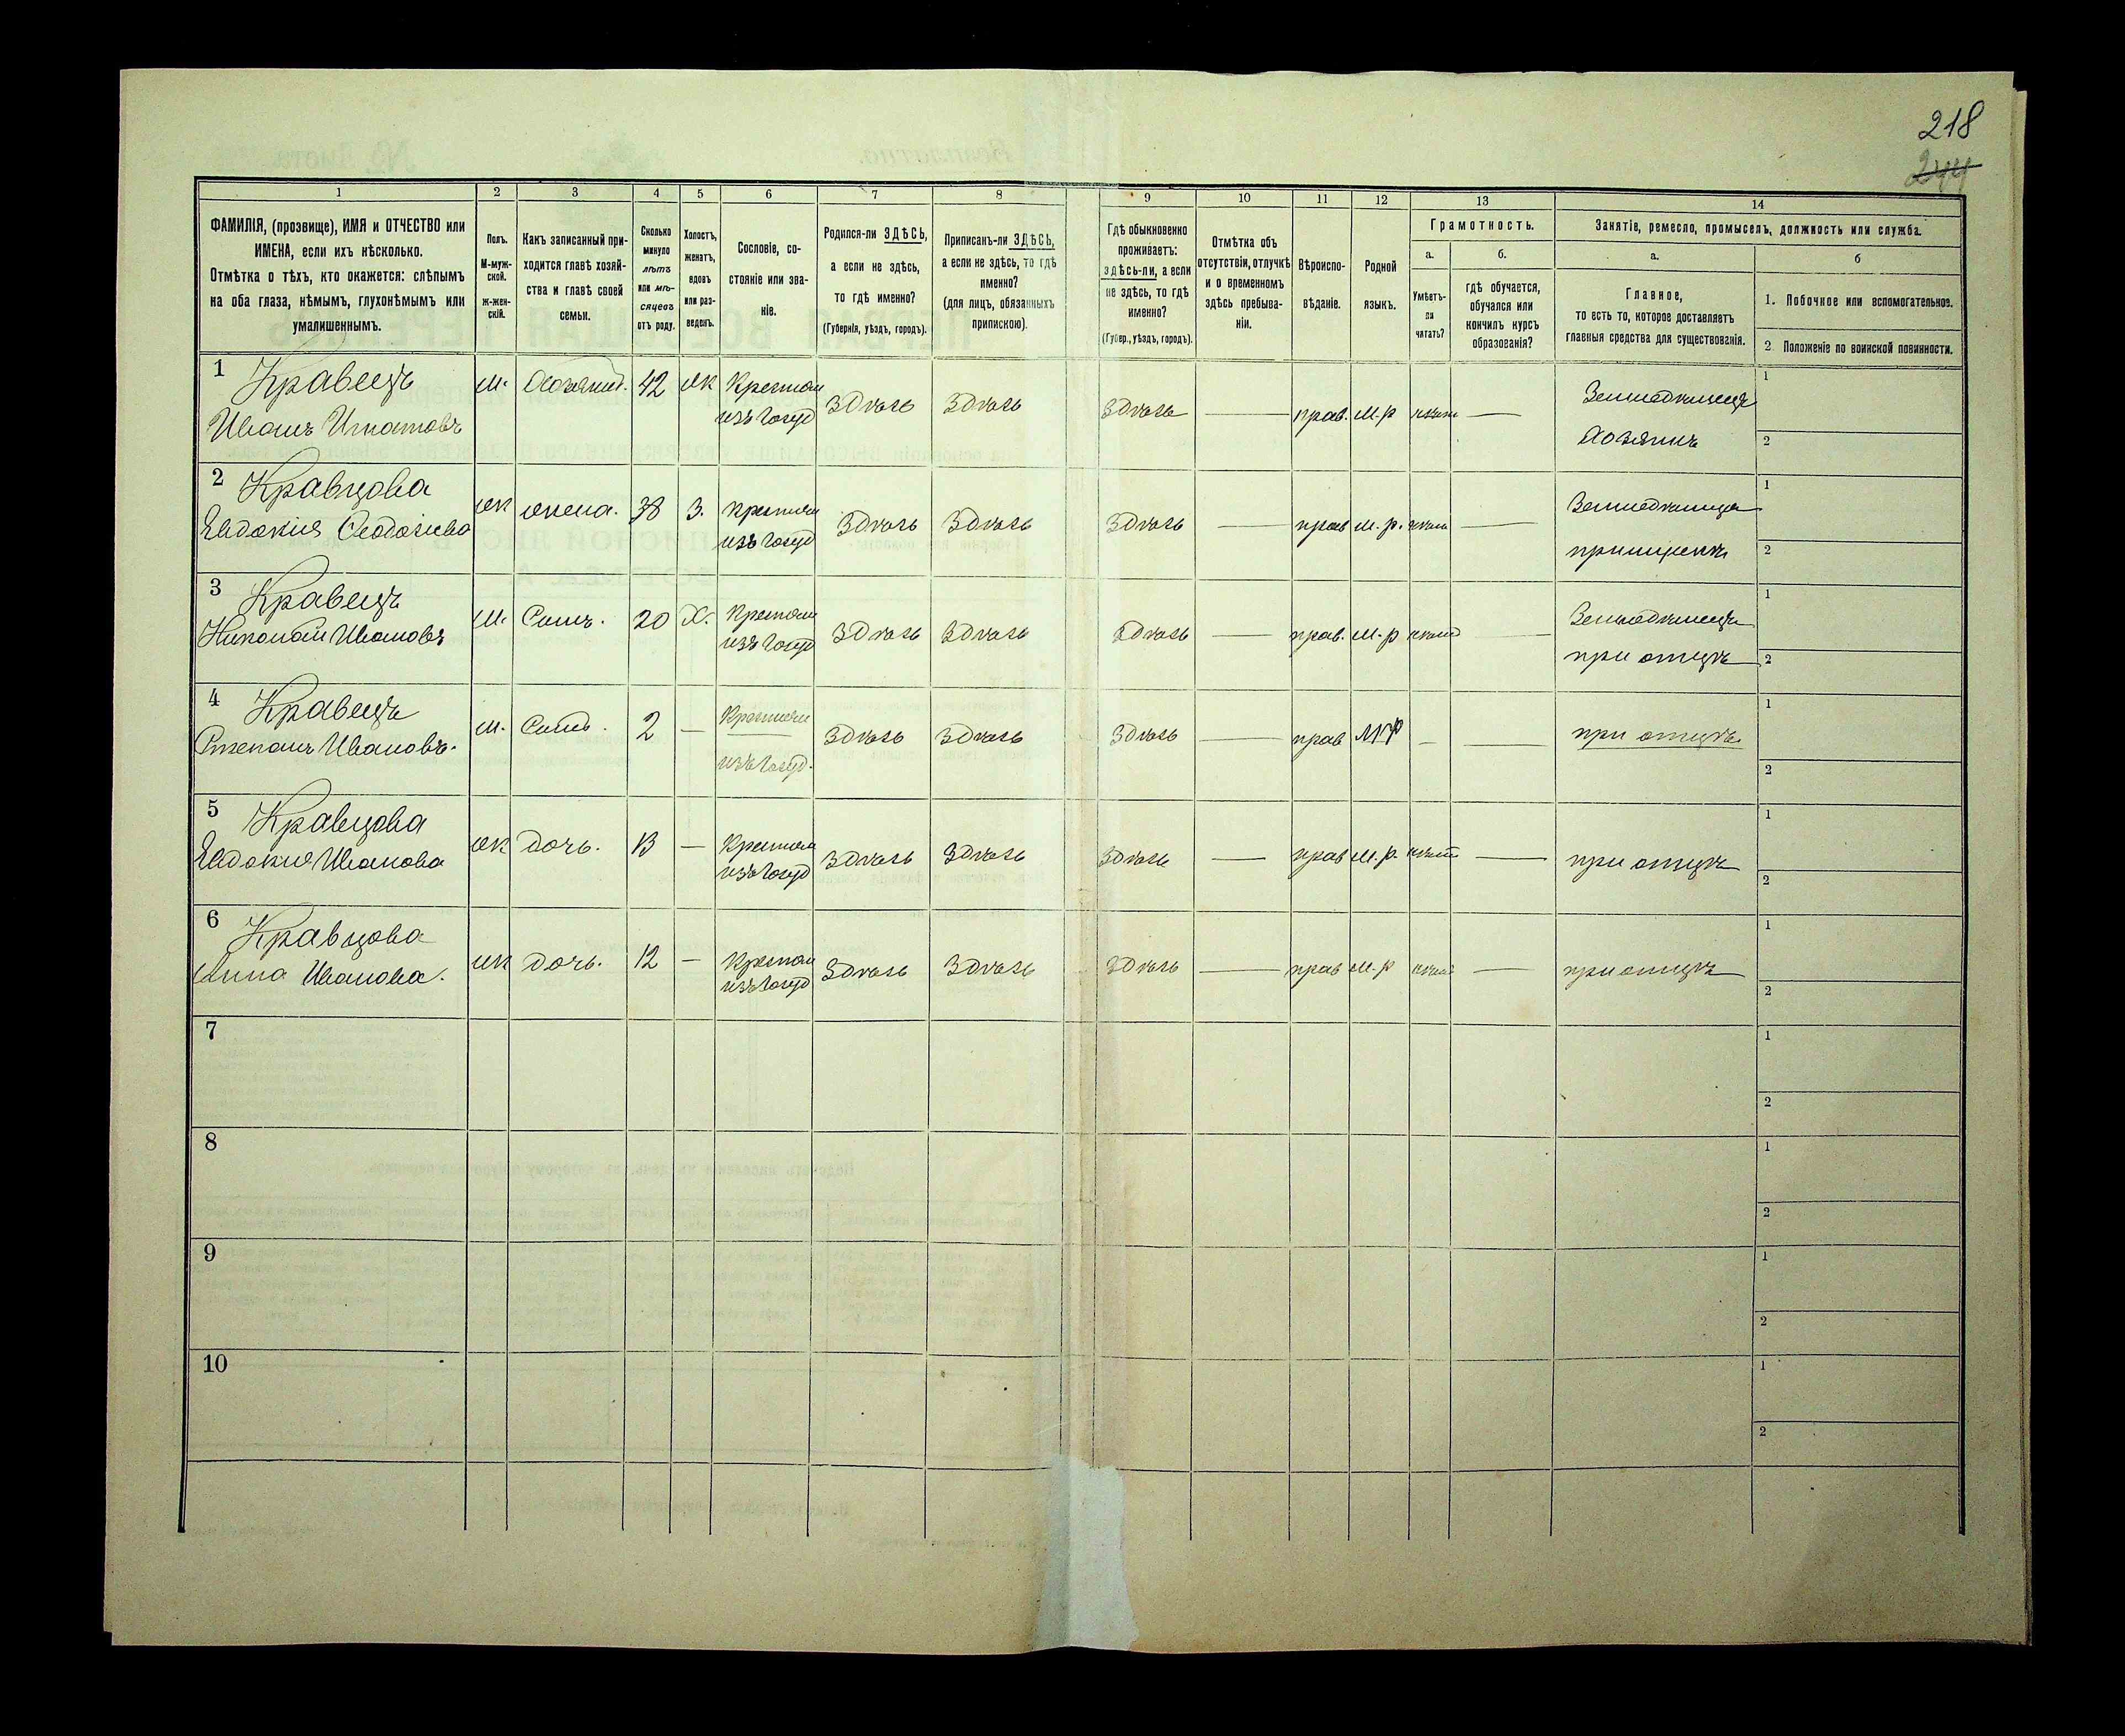 218
244
1 2 3 4 5 6 7 8 9 10 11 12 13 14
ФАМИЛІЯ, (прозвище), ИМЯ и ОТЧЕСТВО или
ИМЕНА, если ихъ нѣсколько.
Отмѣтка о тѣхъ, кто окажется: слѣпымъ
на оба глаза, нѣмымъ, глухонѣмымъ или
умалишеннымъ.
Полъ.
М-муж-
ской.
ж-жен-
скій.
Какъ записанный при-
ходится главѣ хозяй-
ства и главѣ своей
семьи.
Сколько
минуло
лѣтъ
или мѣ-
сяцевъ
отъ роду.
Холостъ,
женатъ,
вдовъ
или раз-
веденъ.
Сословіе, со-
стояніе или зва-
ніе.
Родился-ли ЗДѢСЬ,
а если не здѣсь,
то гдѣ именно?
(Губернія, уѣздъ, городъ).
Приписанъ-ли ЗДѢСЬ,
а если не здѣсь, то гдѣ
именно?
(для лицъ, обязанныхъ
припискою).
Гдѣ обыкновенно
проживаетъ:
здѣсь-ли, а если
не здѣсь, то гдѣ
именно?
(Губер., уѣздъ, городъ).
Отмѣтка объ
отсутствіи, отлучкѣ
и о временномъ
здѣсь пребыва-
ніи.
Вѣроиспо-
вѣданіе.
Родной
языкъ.
Грамотность.
а. б.
Умѣетъ-
ли
читать?
гдѣ обучается,
обучался или
кончилъ курсъ
образованія?
Занятіе, ремесло, промыселъ, должность или служба.
а. б
Главное,
то есть то, которое доставляетъ
главныя средства для существованія.
1. Побочное или вспомогательное.
2. Положеніе по воинской повинности.
1 Кравецъ м. Хозяинъ. 42 ж Крестьян здѣсь здѣсь здѣсь — прав. м.р нѣтъ — Земледѣлецъ 1
Иванъ Игнатовъ изъ госуд Хозяинъ 2
2 Кравцова ж жена. 38 З. Крестьян здѣсь здѣсь здѣсь — прав м.р. нѣтъ — Земледѣлица 1
Евдокія Ѳеодосіева изъ госуд 2
3 Кравецъ м. Сынъ. 20 Х. Крестьян здѣсь здѣсь здѣсь — прав. м.р нѣтъ — Земледѣлецъ 1
Николай Ивановъ изъ госуд при отцѣ 2
4 Кравецъ м. Сынъ. 2 — Крестьян здѣсь здѣсь здѣсь — прав МР — — при отцѣ 1
Степанъ Ивановъ. изъ госуд. 2
5 Кравцова ж дочь. 13 — Крестьян здѣсь здѣсь здѣсь — прав м.р. нѣтъ — при отцѣ 1
Евдокія Иванова изъ госуд 2
6 Кравцова ж дочь. 12 — Крестьян здѣсь здѣсь здѣсь — прав м.р нѣтъ — при отцѣ 1
Анна Иванова. изъ госуд 2
7 1
2
8 1
2
9 1
2
10 1
2